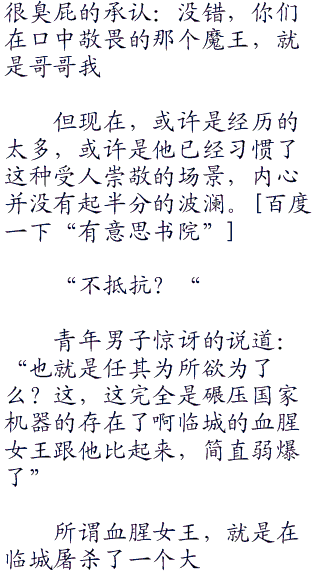 很臭屁的承认：没错，你们
在口中敬畏的那个魔王，就
是哥哥我
但现在，或许是经历的
太多，或许是他已经习惯了
这种受人崇敬的场景，内心
并没有起半分的波澜。[百度
一下“有意思书院”]
“不抵抗？“
青年男子惊讶的说道：
“也就是任其为所欲为了
么？这，这完全是碾压国家
机器的存在了啊临城的血腥
女王跟他比起来，简直弱爆
了”
所谓血腥女王，就是在
临城屠杀了一个大